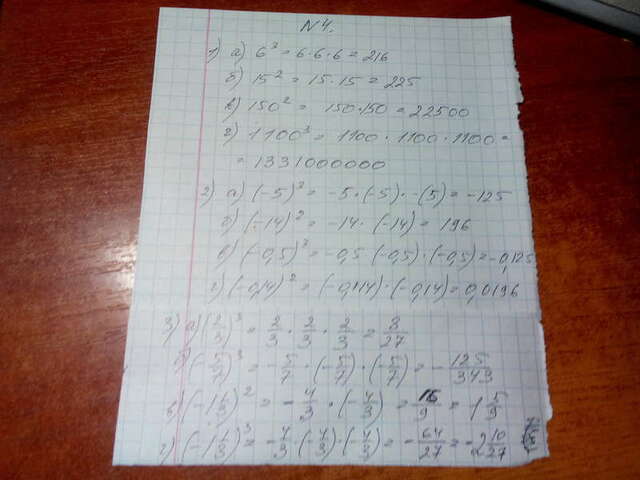 N4.
1) а) 6³ = 6·6·6 = 216
б) 15² = 15·15 = 225
в) 150² = 150·150 = 22500
г) 1100³ = 1100·1100·1100 =
= 1331000000
2) а) (-5)³ = -5·(-5)·-(5) = -125
б) (-14)² = -14·(-14) = 196
в) (-0,5)³ = -0,5 (-0,5)·(-0,5) = -0,125
г) (-0,14)² = (-0,14)·(-0,14) = 0,0196
3) а) (2/3)³ = 2/3 · 2/3 · 2/3 = 8/27
б) (-5/7)³ = -5/7 · (-5/7) · (-5/7) = -125/343
в) (-1 1/3)² = -4/3 · (-4/3) = 16/9 = 1 5/9
г) (-1 1/3)³ = -4/3 · (-4/3) · (-4/3) = -64/27 = -2 10/27